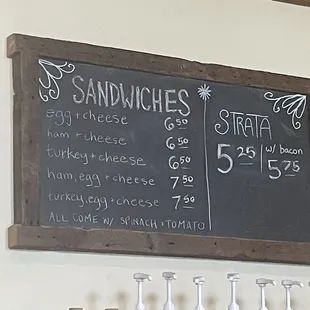 SANDWICHES
egg + cheese 6.50
ham + cheese 6.50
turkey + cheese 6.50
ham, egg + cheese 7.50
turkey, egg + cheese 7.50
ALL COME W/ SPINACH + TOMATO
STRATA
5.25 w/ bacon 5.75